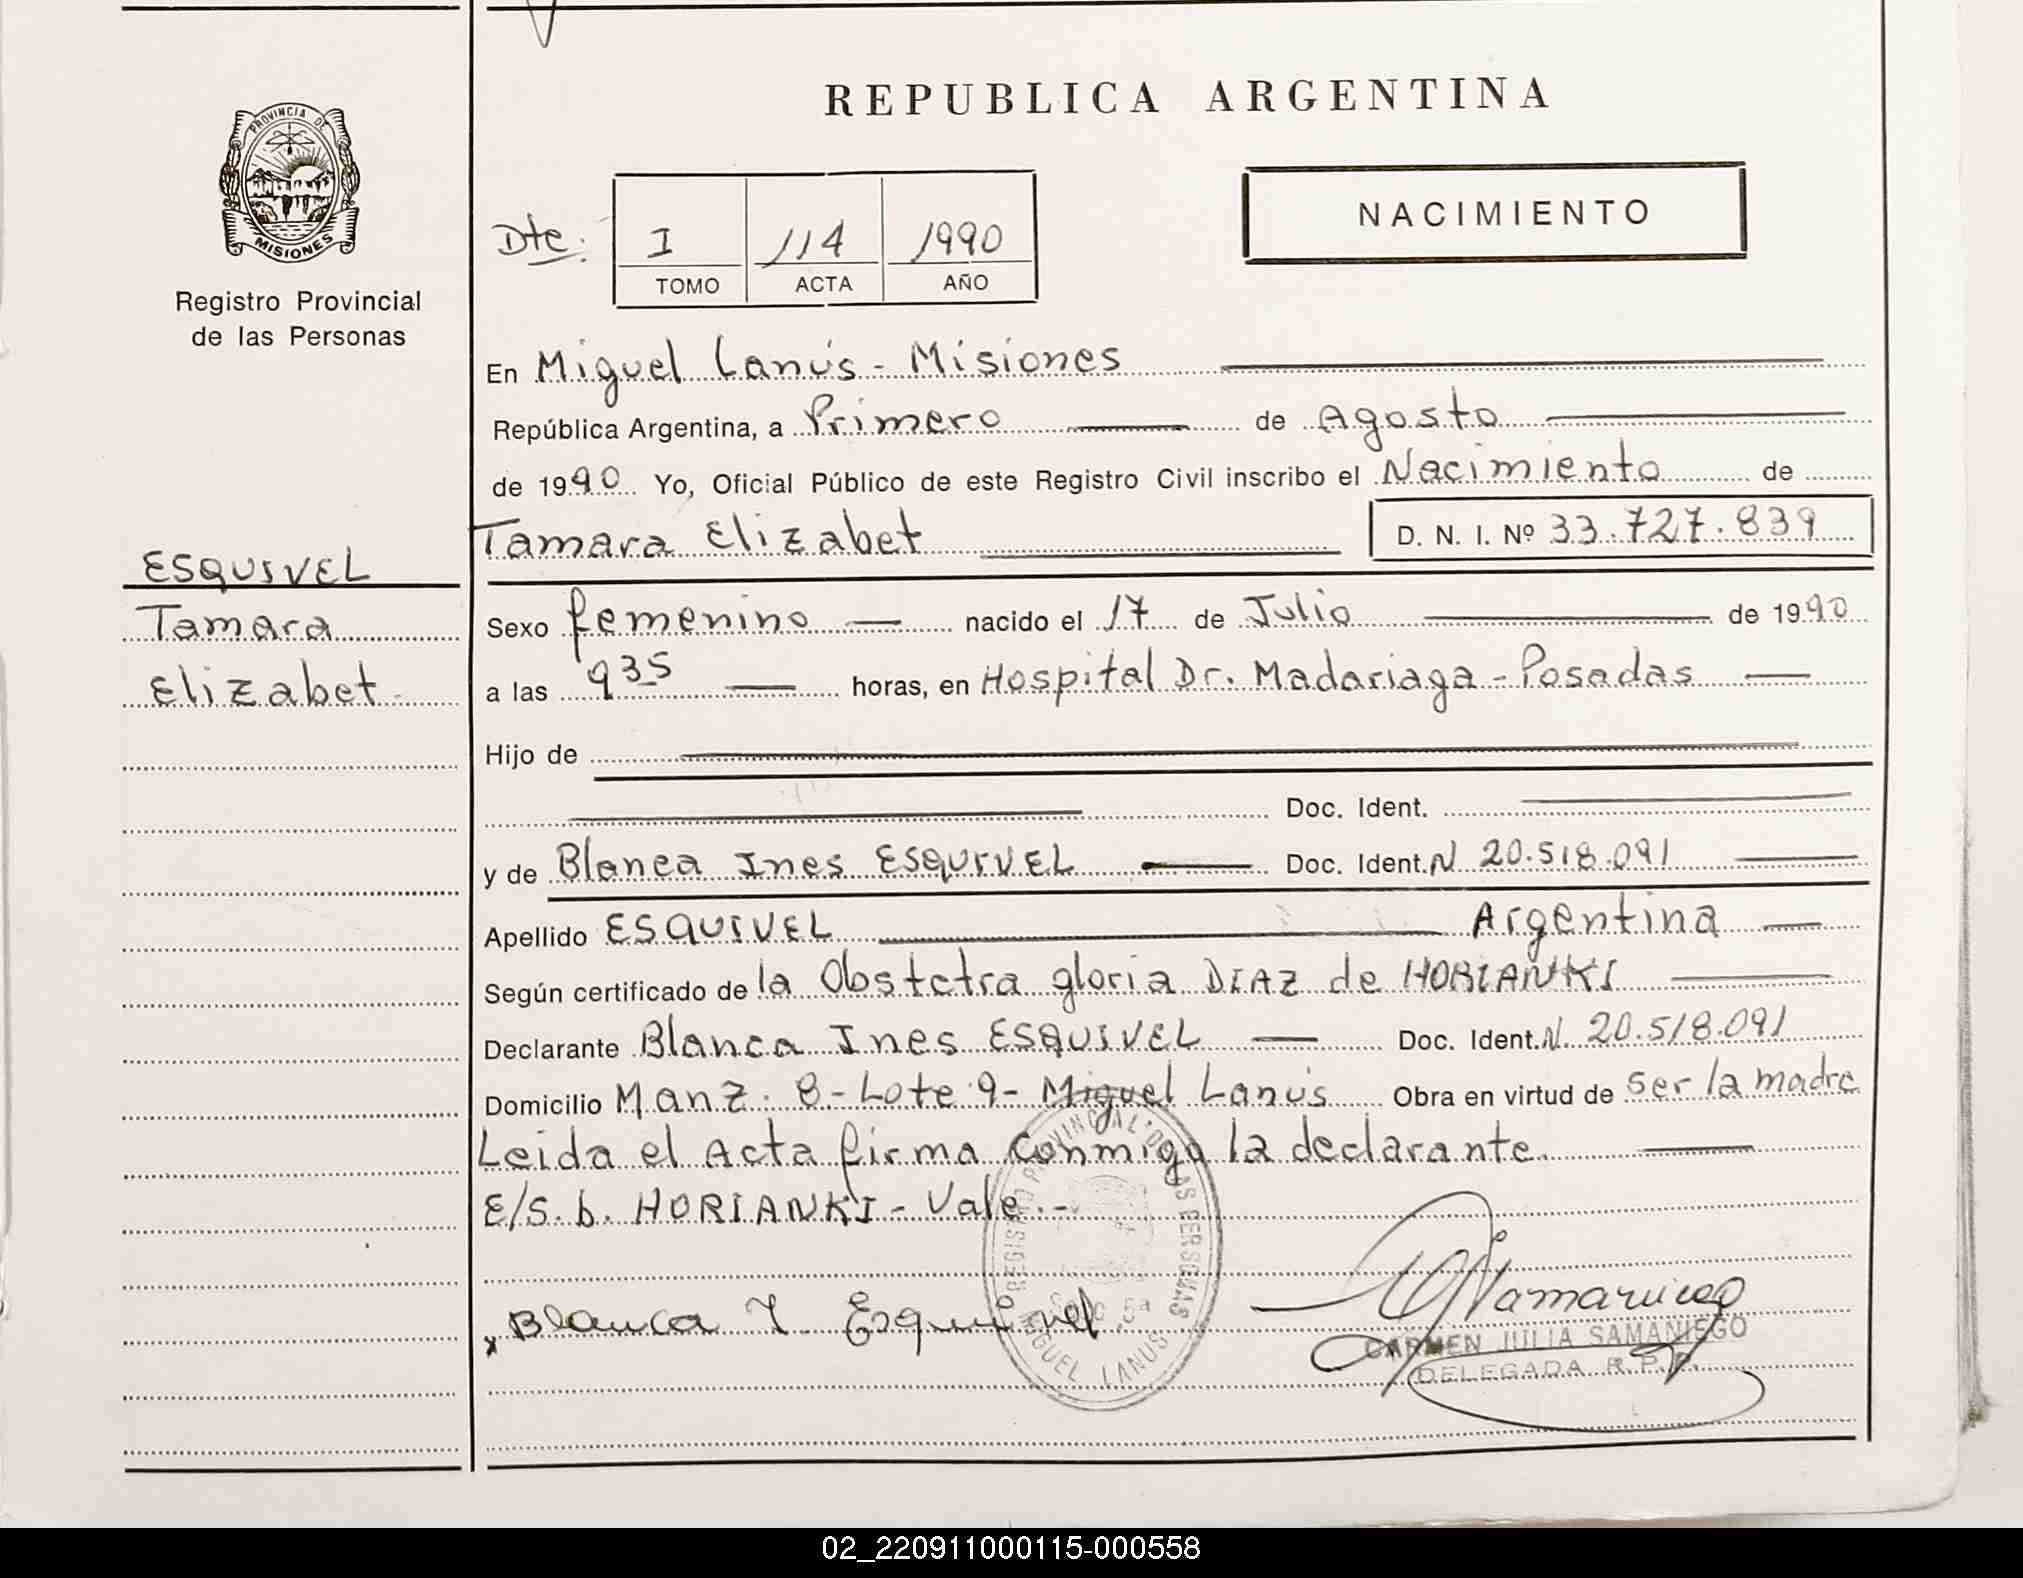 REPUBLICA ARGENTINA
PROVINCIA DE
MISIONES
Registro Provincial
de las Personas
NACIMIENTO
Dte:
I 114 1990
TOMO ACTA AÑO
En Miguel Lanús - Misiones
República Argentina, a Primero de Agosto
de 1990 Yo, Oficial Público de este Registro Civil inscribo el Nacimiento de
Tamara Elizabet D. N. I. Nº 33.727.839
ESQUIVEL
Tamara
Elizabet
Sexo femenino nacido el 17 de Julio de 1990
a las 935 horas, en Hospital Dr. Madariaga - Posadas
Hijo de
Doc. Ident.
y de Blanca Ines ESQUIVEL Doc. Ident. N 20.518.091
Apellido ESQUIVEL Argentina
Según certificado de la Obstetra gloria DIAZ de HORIANKI
Declarante Blanca Ines ESQUIVEL Doc. Ident. N. 20.518.091
Domicilio Manz. 8 - Lote 9 - Miguel Lanús Obra en virtud de ser la madre
Leida el Acta firma conmigo la declarante.
E/S. b. HORIANKI - Vale. -
x Blanca I Esquivel
REGISTRO PROVINCIAL DE LAS PERSONAS
MIGUEL LANUS
CARMEN JULIA SAMANIEGO
DELEGADA R. P. P.
02_220911000115-000558